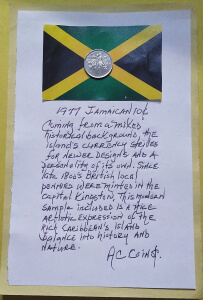 1977 JAMAICAN 10¢
COMING FROM A MIXED
HISTORICAL BACKGROUND, THE
ISLAND'S CURRENCY STRIVES
FOR NEWER DESIGNS AND A
PERSONALITY OF ITS OWN. SINCE
LATE 1800'S BRITISH LOCAL
PENNIES WERE MINTED IN THE
CAPITAL KINGSTON, THIS MODERN
SAMPLE INCLUDED IS A NICE
ARTISTIC EXPRESSION OF THE
RICH CARIBBEAN'S ISLAND
BALANCE INTO HISTORY AND
NATURE.
AC COIN$.